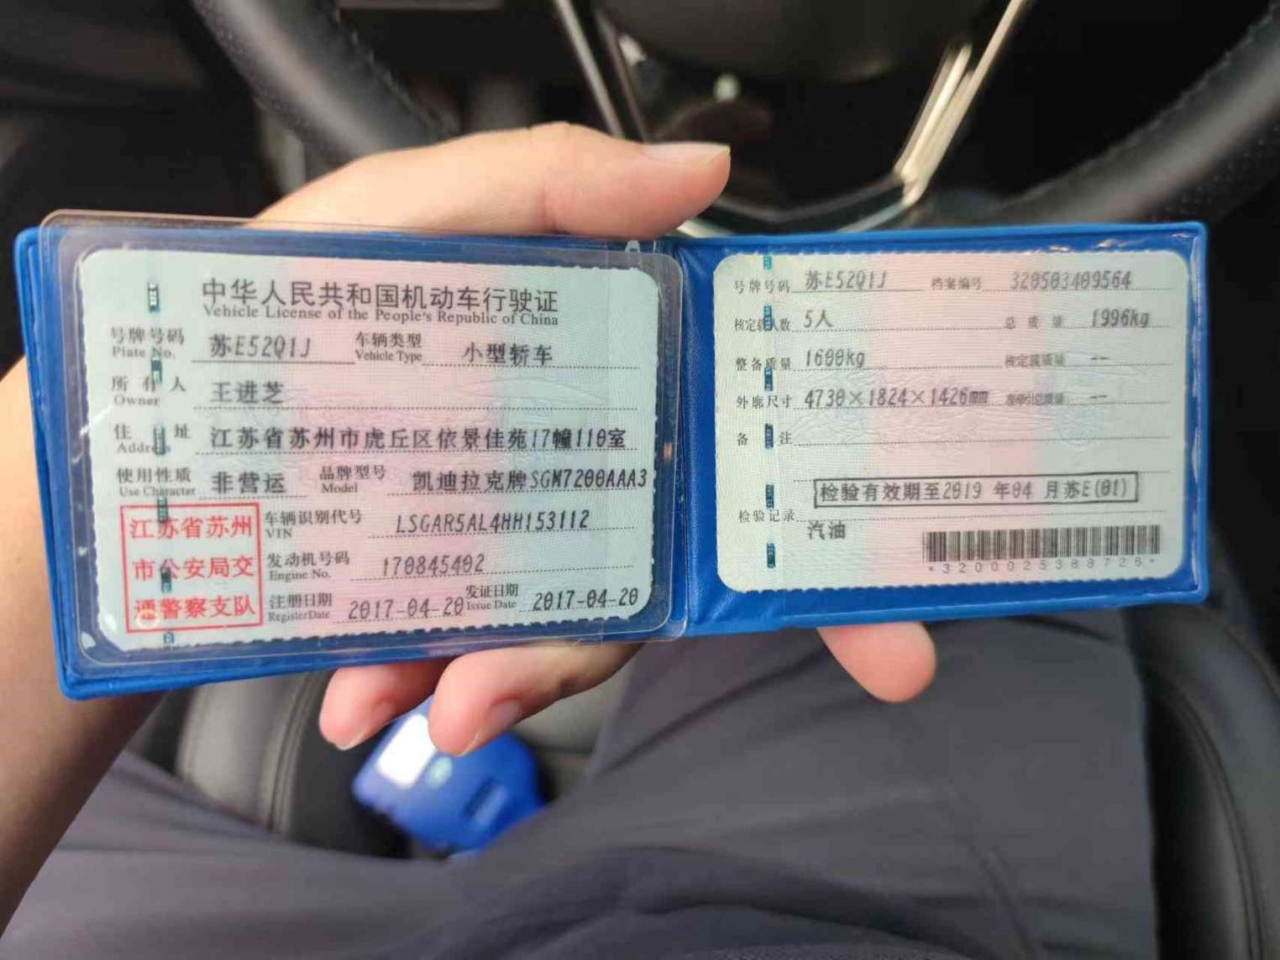 中华人民共和国机动车行驶证
Vehicle License of the People's Republic of China
号牌号码 苏E52Q1J 车辆类型 小型轿车
Plate No. Vehicle Type
所有人 王进芝
Owner
住址 江苏省苏州市虎丘区依景佳苑17幢110室
Address
使用性质 非营运 品牌型号 凯迪拉克牌SGM7200AAA3
Use Character Model
江苏省苏州
市公安局交
通警察支队
车辆识别代号 LSGAR5AL4HH153112
VIN
发动机号码 170845402
Engine No.
注册日期 2017-04-20 发证日期 2017-04-20
Register Date Issue Date
号牌号码 苏E52Q1J 档案编号 320503409564
核定载人数 5人 总质量 1996kg
整备质量 1600kg 核定载质量 --
外廓尺寸 4730×1824×1426mm 准牵引总质量 --
备注
检验有效期至2019年04月苏E(01)
检验记录
汽油
*3200025388726*